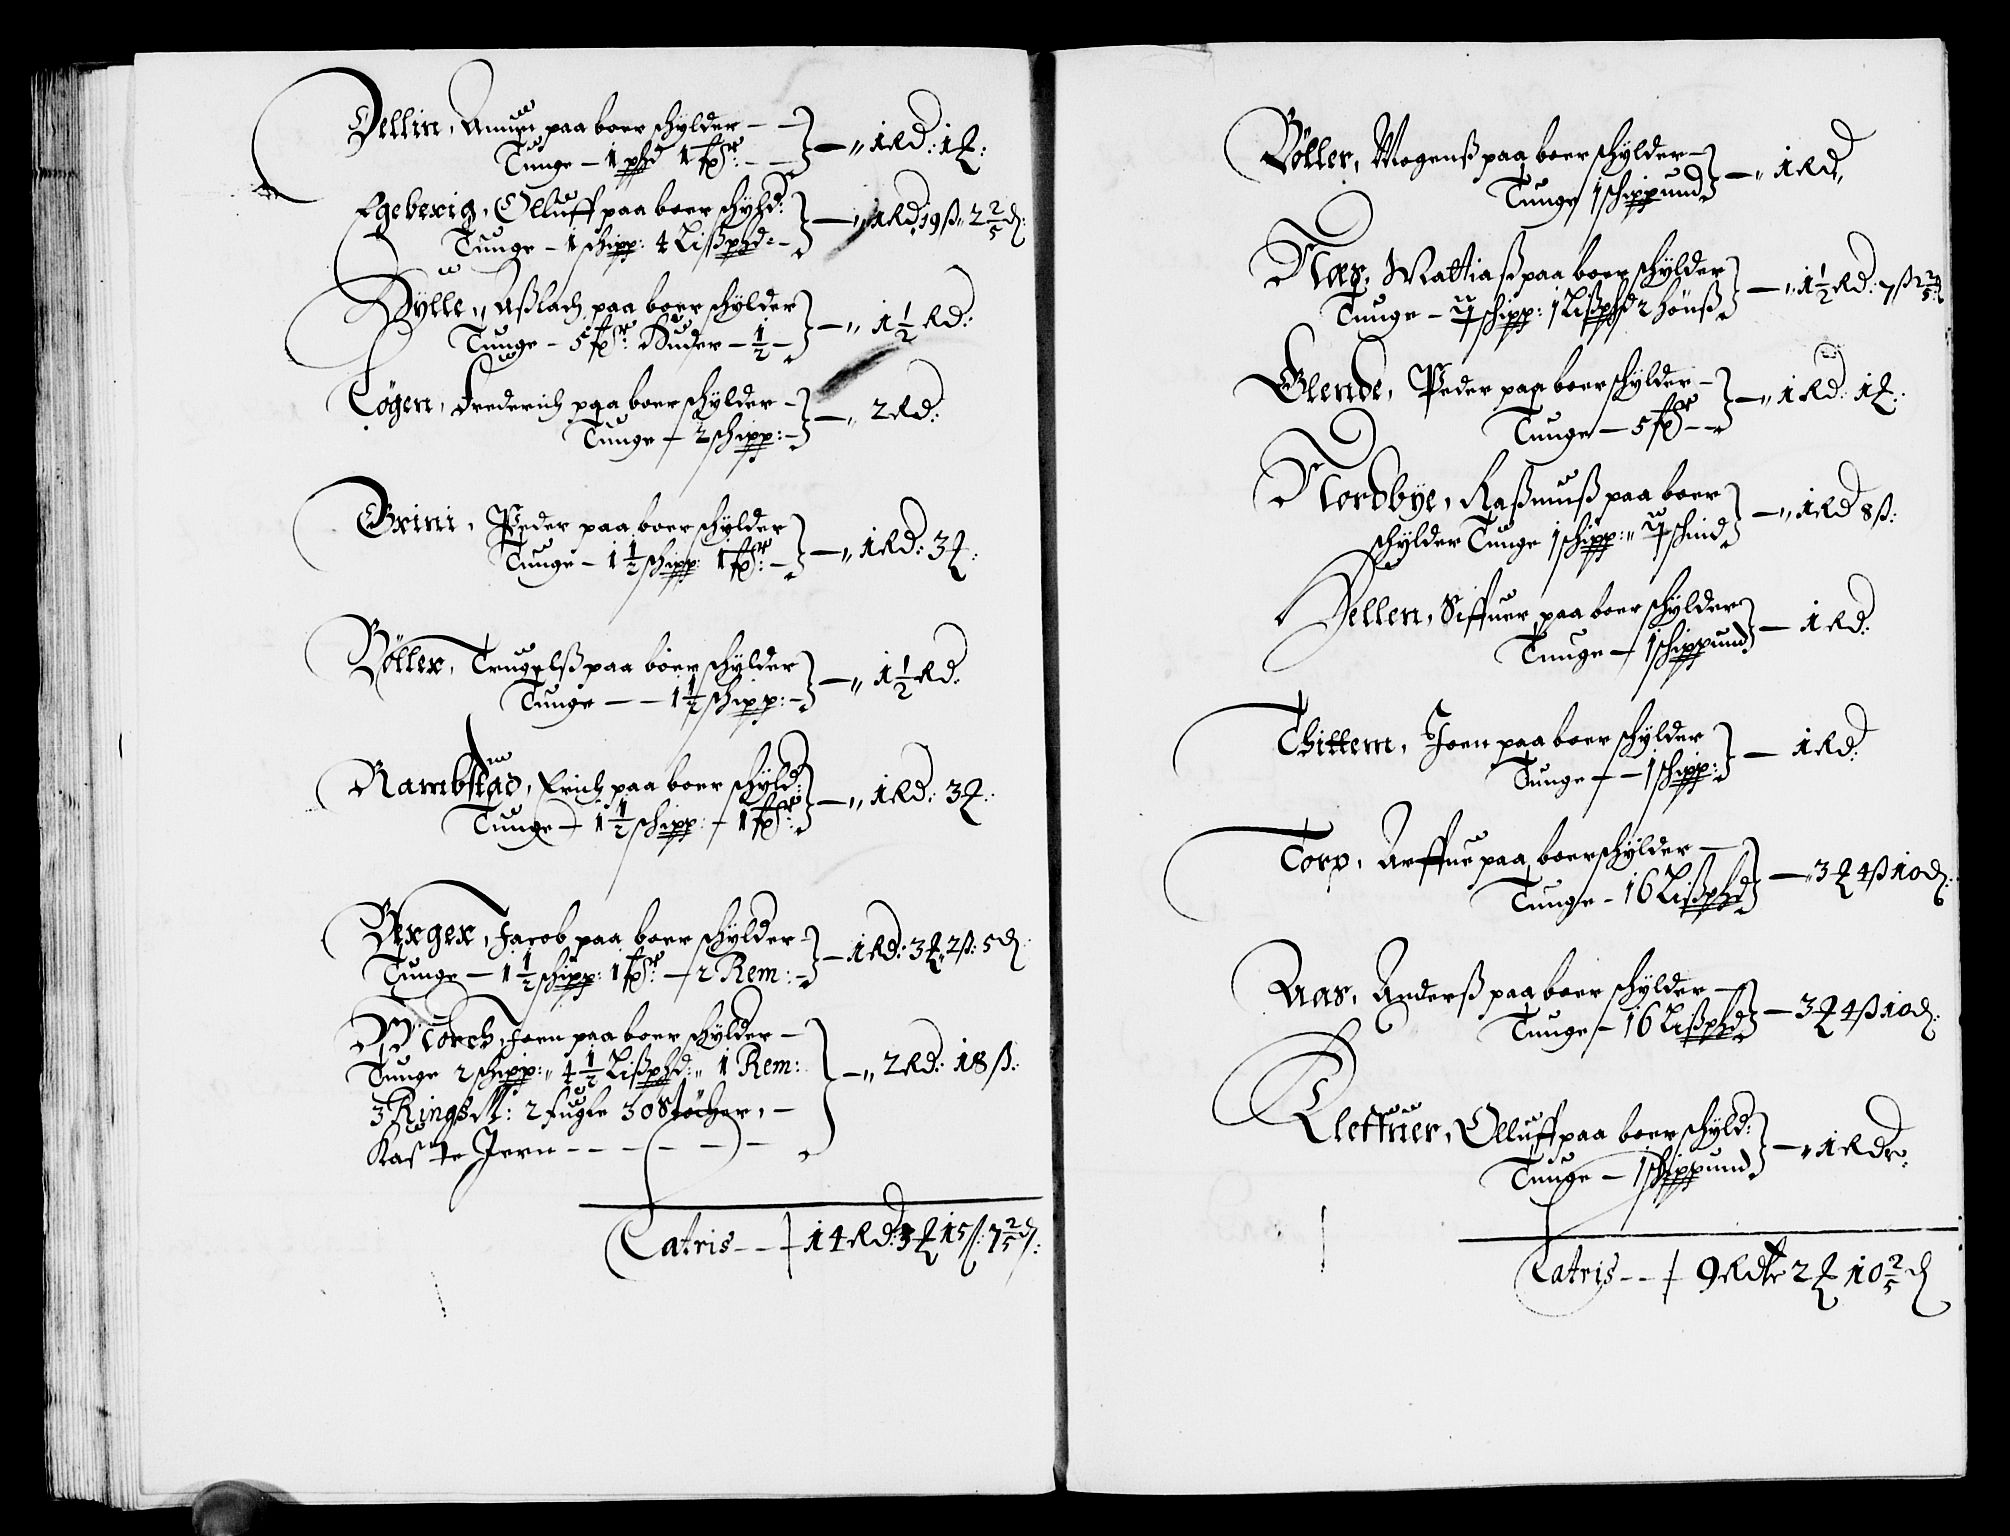 Dellin, Amun paa boer schylder — —
Tunge — 1 phd 1 fr: — — — „ 1 Rd: 1 ℔:
Egeberig, Olluff paa boer schyld:
Tunge — 1 schipp: 4 Lißphd: — — „ 1 Rd 19 ß „ 2 2/5 d:
Hÿlle „ Aßlach paa boer schylder
Tunge — 5 fr: Huder — 1/2 — — „ 1 1/2 Rd:
Løgen, Frederich paa boer schylder —
Tunge — 2 schipp: — — „ 2 Rd:
Grini, Peder paa boer schylder
Tunge — 1 1/2 schipp: 1 fr: — — „ 1 Rd: 3 ℔:
Bøller, Trugelß paa boer schylder
Tunge — — 1 1/2 schipp: — — „ 1 1/2 Rd:
Rambstad, Erich paa boer schyld:
Tunge — 1 1/2 schipp: — 1 fr: — „ 1 Rd: 3 ℔:
Berger, Jacob paa boer schylder —
Tunge — 1 1/2 schipp: 1 fr: — 2 Rem: — — 1 Rd: 3 ℔ „ 2 ß: 5 d:
Joen paa boer schylder —
Tunge 2 schipp: „ 4 1/2 Lißphd: „ 1 Rem:
3 Rings 2 fugle 30 Støcher, — — „ 2 Rd: 18 ß:
Kaste Jern — — — — —
Latris — — 14 Rd: 3 ℔ 15 ß: 7 2/5 d:
Bøller, Mogenß paa boer schylder —
Tunge 1 schippund — „ 1 Rd „
Næs, Mattiaß paa boer schylder
Tunge — schipp: 1 Lißphd 2 hönß — „ 1 1/2 Rd: 7 ß 2 2/5 d:
Glende, Peder paa boer schylder —
Tunge — 5 fr — — — „ 1 Rd: 1 ℔:
Nordbye, Raßmuß paa boer
schylder Tunge 1 schipp: „ schind — „ 1 Rd 8 ß:
Dellen, Siffuer paa boer schylder
Tunge — 1 schippund — 1 Rd:
Thittem, Joen paa boer schylder
Tunge — — 1 schipp: — 1 Rd:
Torp, Arffue paa boer schylder —
Tunge — 16 Lißphd — „ 3 ℔ 4 ß 10 d:
Aas, Anderß paa boer schylder —
Tunge — 16 Lißphd — 3 ℔ 4 ß 10 d:
Klettuer, Olluff paa boer schyld:
Tunge — 1 schippund — „ 1 Rdr:
Latris — — 9 Rdlr 2 ℔ 10 2/5 d